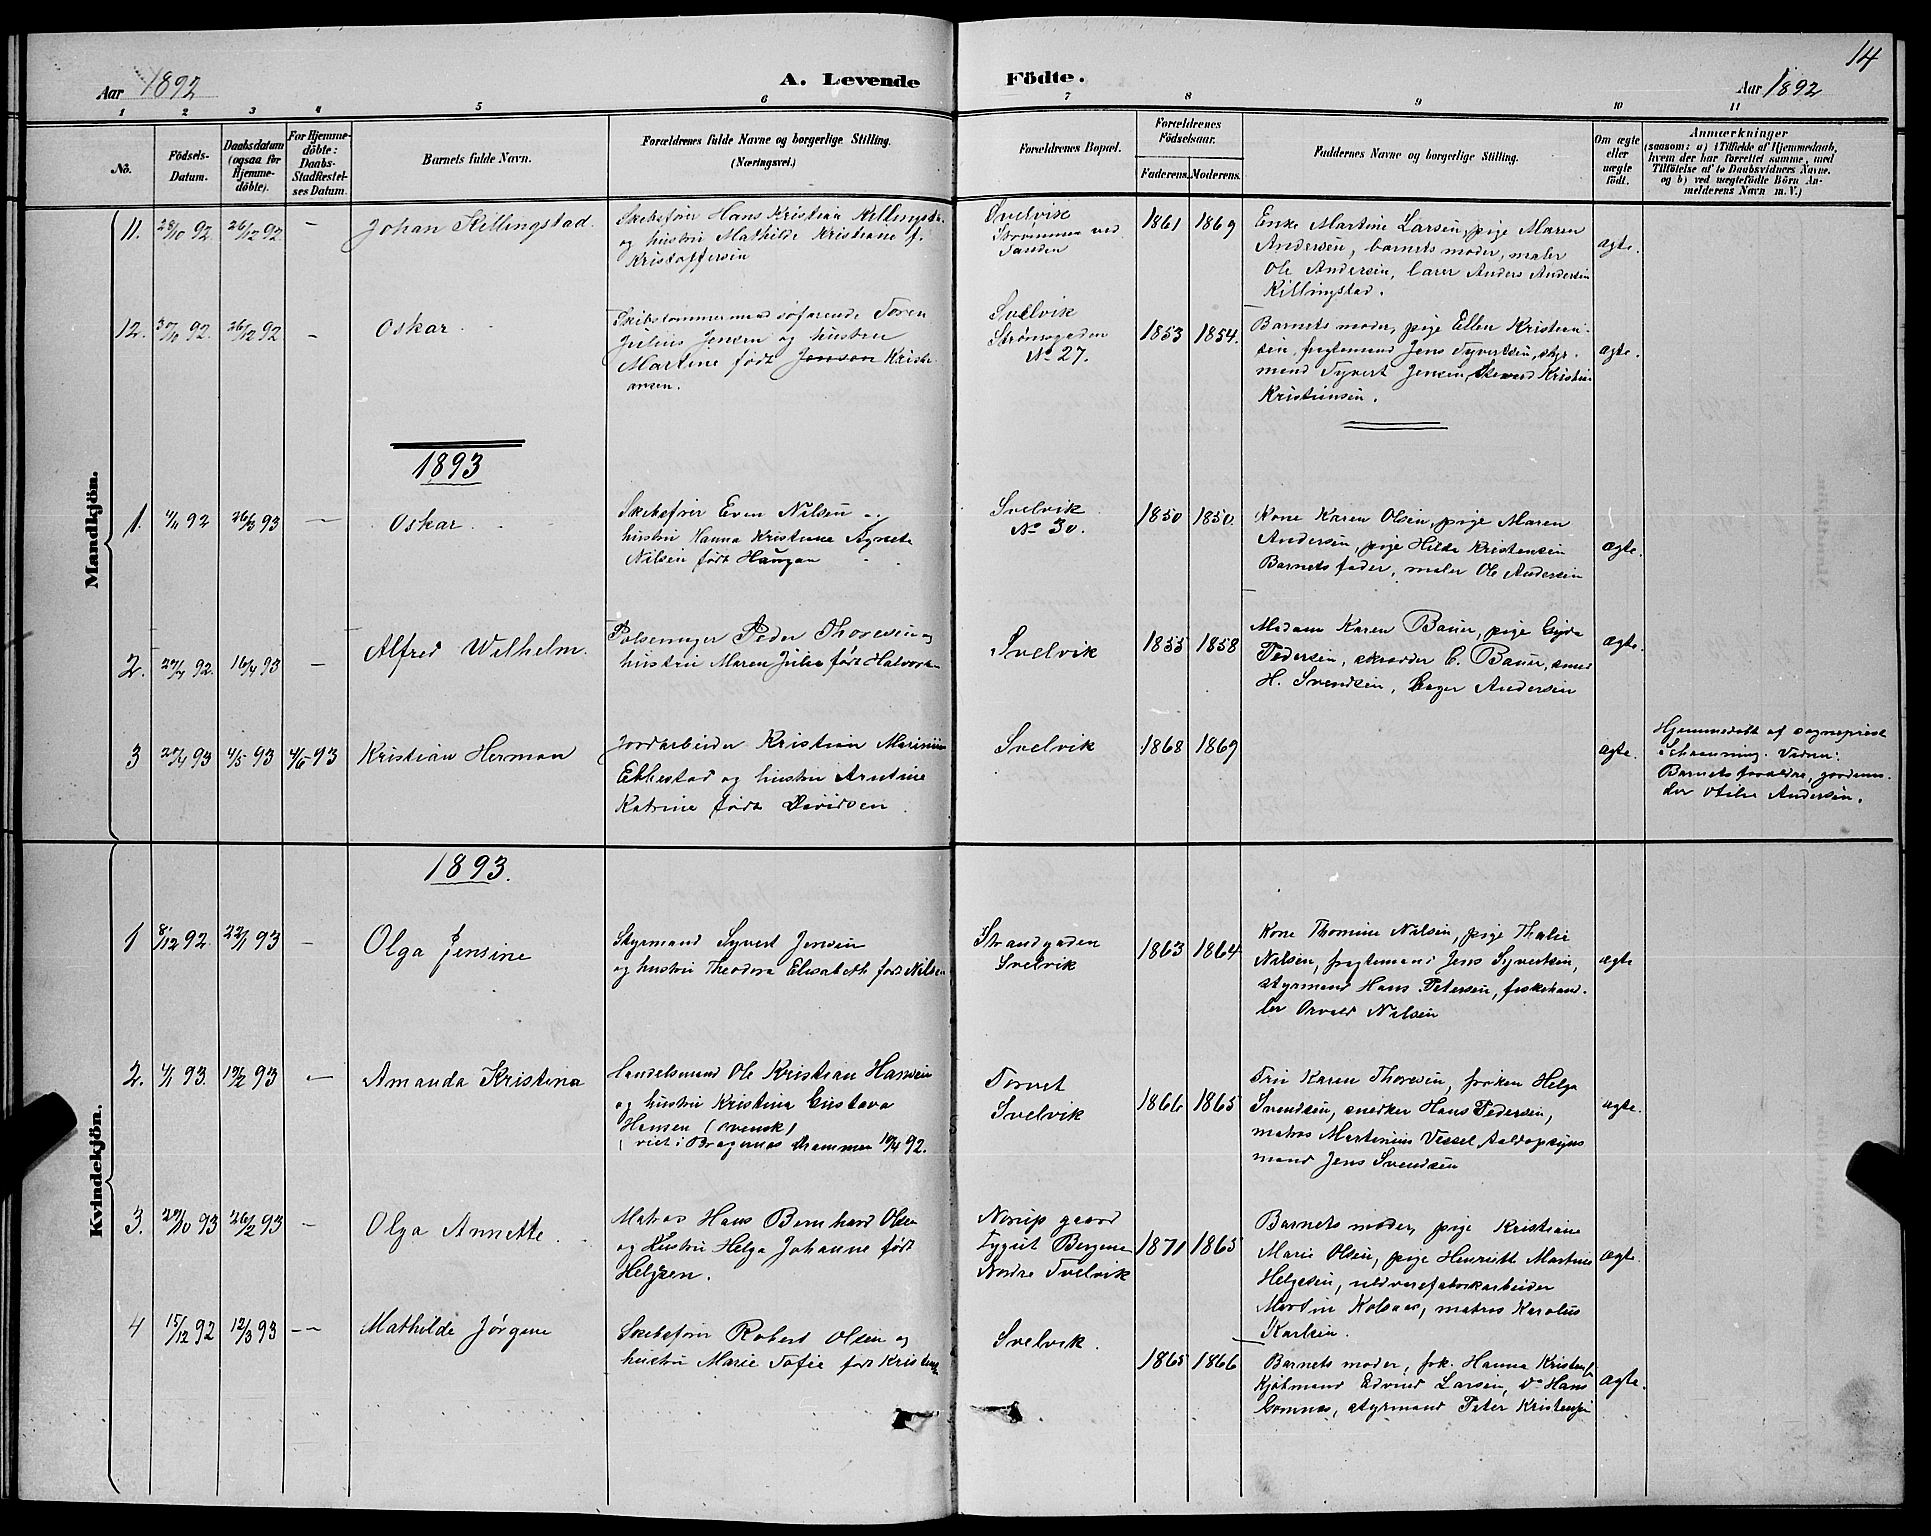 14
Aar 1892
A. Levende Födte.
Aar 1892
1 2 3 4 5 6 7 8 9 10 11
No.
Födsels-
Datum.
Daabsdatum
(ogsaa for
Hjemme-
döbte).
For Hjemme-
döbte:
Daabs-
Stadfæstel-
ses Datum.
Barnets fulde Navn.
Forældrenes fulde Navne og borgerlige Stilling.
(Næringsvei.)
Forældrenes Bopæl.
Forældrenes
Födselsaar.
Faderens. Moderens.
Faddernes Navne og borgerlige Stilling.
Om ægte
eller
uægte
födt.
Anmærkninger
(saasom: a) i Tilfælde af Hjemmedaab,
hvem der har forrettet samme, med
Tilföielse af to Daabsvidners Navne.
og b) ved uægtefödte Börn An-
melderens Navn m. V.)
Mandkjön.
11. 28/10 92. 26/12 92 — Johan Killingstad.
Skibsfører Hans Kristian Killingsta
og hustru Mathilde Kristiane f.
Kristoffersen
Svelvik
Strømmen ved
Sanden
1861 1869
Enke Martine Larsen, pige Maren
Andersen, barnets moder, maler
Ole Andersen, lærer Anders Andersen
Killingstad.
ægte.
12. 30/10 92. 26/12 92 — Oskar
Skibstømmermand søfarende Søren
Julius Jensen og hustru
Martine født Jonson Kristi
ansen.
Svelvik
Strømsgaden
No 27.
1853 1854.
Barnets moder, pige Ellen Kristian-
sen, fragtemand Jens Syvertsen, styr-
mand Syvert Jensen, Steward Kristian
Kristiansen.
ægte.
1893
1. 4/11 92 26/3 93 — Oskar
Skibsfører Even Nilsen og
hustru Hanna Kristiane Agnete
Nilsen født Haugan
Svelvik
No 30.
1850 1850.
Kone Karen Olsen, pige Maren
Andersen, pige Hilda Kristensen
Barnets fader, maler Ole Andersen
ægte.
2. 92. 16/4 93 — Alfred Wilhelm.
Pølsemager Peder Thoresen og
hustru Maren Julie født Halvors
Svelvik
1855 1858
Madam Karen Bauer, pige Gyda
Pedersen, skrædder C. Bauer, smed
H. Svendsen, Bager Andersen
ægte.
3 27/4 93 4/5 93 4/6 93 Kristian Herman
Jordarbeider Kristian Marinius
Ekkestad og hustru Arntine
Katrine født Davidsen.
Svelvik
1868 1869
ægte.
Hjemmedøbt af sogneprest
Schanning. Vidner:
Barnets forældre, gjordemo-
der Otilie Andersen.
Kvindekjön.
1893.
1 8/12 92. 22/1 93 — Olga Jensine
Styrmand Syvert Jensen
og hustru Theodora Elisabeth født Nilsen
Strandgaden
Svelvik
1863 1864
Kone Thomine Nilsen, pige Thalie
Nilsen, fragtemand Jens Syvertsen,
styrmand Hans Petersen, fiskehand-
ler Osvald Nilsen
ægte
2. 4/1 93. 19/2 93 — Amanda Kristina
Handelsmand Ole Kristian Hansen
og hustru Kristina Gustava
Hansen (svensk)
(viet i Bragernes Drammen 10/4 92.
Torvet
Svelvik
1866 1865
Fru Karen Thoresen, frøken Helga
Svendsen, snedker Hans Pedersen,
matros Martinius Vessel, toldopsyns
mand Jens Svendsen
ægte.
3. 29/10 93 26/2 93 — Olga Annette.
Matros Hans Bernhard Olsen
og Hustru Helga Johanne født
Helgsen.
Norup gaard
Bergene
Nordre Svelvik
1871 1865
Barnets moder, pige Kristiane
Marie Olsen, pige Henriette Martine
Helgesen, uldvarefabrikarbeider
Martin Kolsaas, matros Karolus
Karlsen.
ægte.
4 15/12 92 12/3 93 — Mathilde Jørgine
Skibsfører Robert Olsen og
hustru Marie Sofie født Kristens
Svelvik.
1865 1866
Barnets moder, frk. Hanna Kristens
Kjøbmand Edvard Larsen, Do Hans
Gomnæs, styrmand Peter Kristensen
ægte.